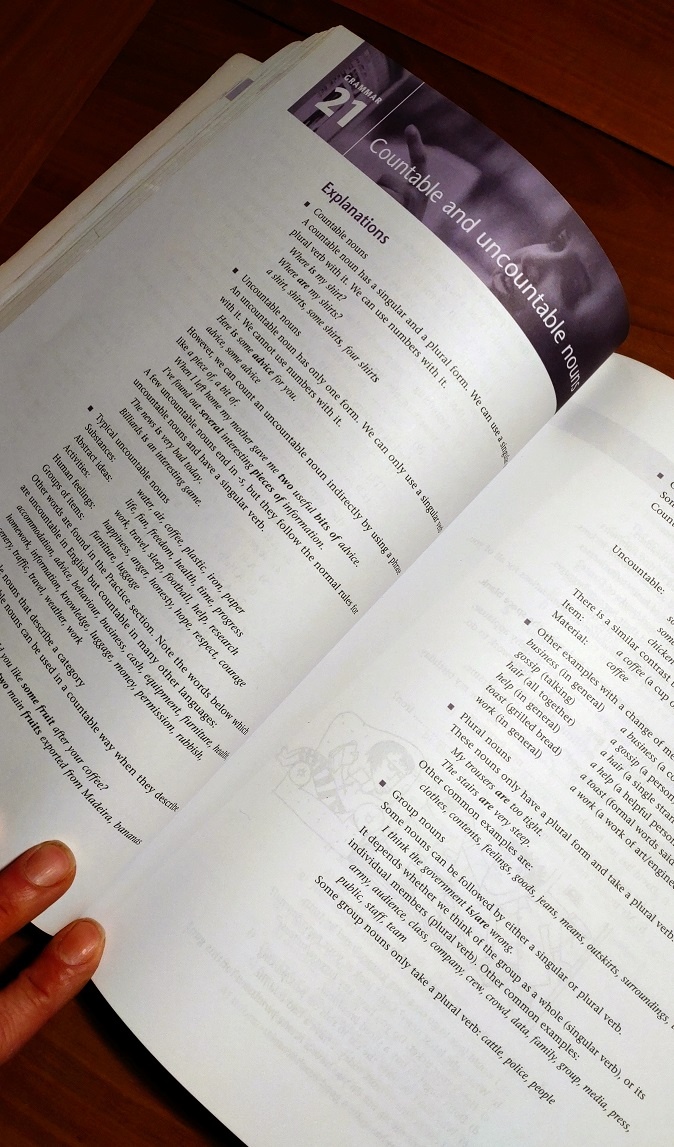 GRAMMAR
21
Countable and uncountable nouns
Explanations
■ Countable nouns
A countable noun has a singular and a plural form. We can use a
plural verb with it. We can use numbers with it.
Where is my shirt?
Where are my shirts?
a shirt, shirts, some shirts, four shirts
■ Uncountable nouns
An uncountable noun has only one form. We can only use a singular
with it. We cannot use numbers with it.
Here is some advice for you.
advice, some advice
However, we can count an uncountable noun indirectly by using a phrase
like a piece of, a bit of.
When I left home my mother gave me two useful bits of advice.
I've found out several interesting pieces of information.
A few uncountable nouns end in -s, but they follow the normal rules for
uncountable nouns and have a singular verb.
The news is very bad today.
Billiards is an interesting game.
■ Typical uncountable nouns
Substances: water, air, coffee, plastic, iron, paper
Abstract ideas: life, fun, freedom, health, time, progress
Activities: work, travel, sleep, football, help, research
Human feelings: happiness, anger, honesty, hope, respect, courage
Groups of items: furniture, luggage
Other words are found in the Practice section. Note the words below which
are uncountable in English but countable in many other languages:
accommodation, advice, behaviour, business, cash, equipment, furniture, health,
homework, information, knowledge, luggage, money, permission, rubbish,
traffic, travel, weather, work
nouns that describe a category
nouns can be used in a countable way when they describe
you like some fruit after your coffee?
two main fruits exported from Madeira, bananas
Uncountable:
chicken
There is a similar contrast
Item: a coffee (a cup o
Material: coffee
■ Other examples with a change of me
business (in general) a business (a co
gossip (talking) a gossip (a person
hair (all together) a hair (a single stran
help (in general) a help (a helpful person
toast (grilled bread) a toast (formal words said
work (in general) a work (a work of art/engine
■ Plural nouns
These nouns only have a plural form and take a plural verb.
My trousers are too tight.
The stairs are very steep.
Other common examples are:
clothes, contents, feelings, goods, jeans, means, outskirts, surroundings,
■ Group nouns
Some nouns can be followed by either a singular or plural verb.
I think the government is/are wrong.
It depends whether we think of the group as a whole (singular verb), or its
individual members (plural verb). Other common examples:
army, audience, class, company, crew, crowd, data, family, group, media, press,
public, staff, team
Some group nouns only take a plural verb: cattle, police, people